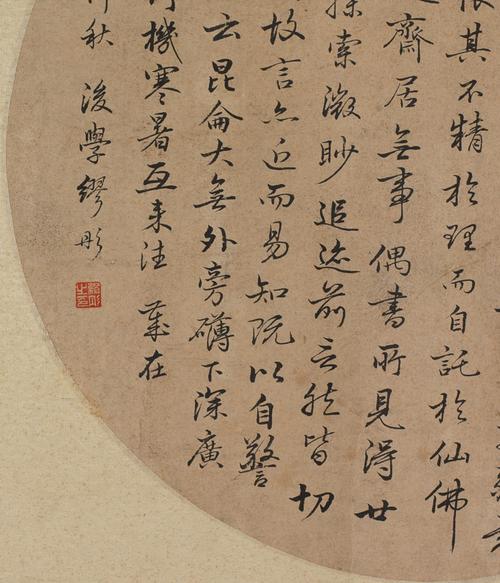 其不精於理而自託於仙佛
齋居無事偶書所見得廿
探索微眇追迹前言然皆切
故言亦近而易知既以自警
云昆侖大無外旁礴下深廣
機寒暑互来往 歲在
秋 後學繆彤
繆彤之印